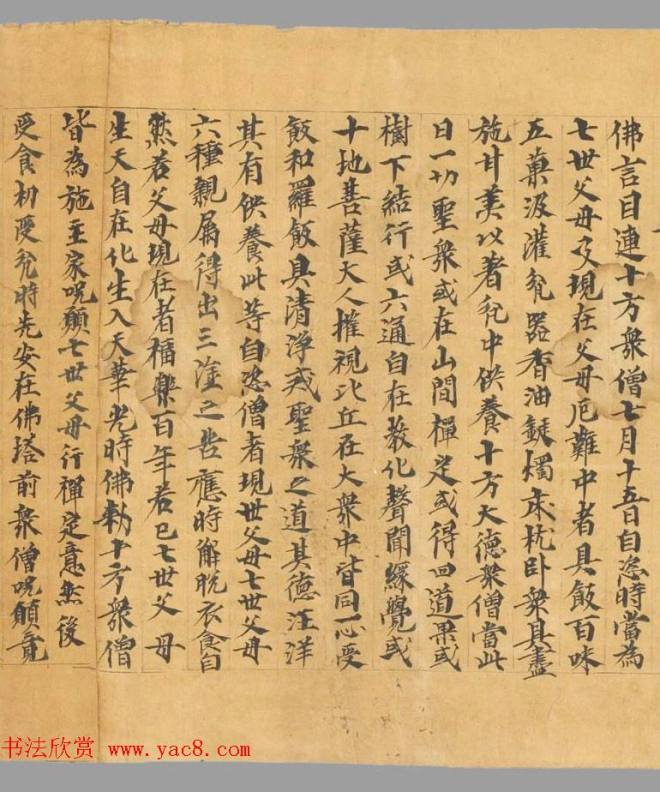 佛言目連十方衆僧七月十五日自恣時當為
七世父母及現在父母厄難中者具飯百味
五菓汲灌瓫器香油鋌燭床枕卧衆具盡
施甘美以著瓫中供養十方大德衆僧當此
日一切聖衆或在山間禪定或得四道果或
樹下結行或六通自在教化聲聞緣覺或
十地菩薩大人權視比丘在大衆中皆同一心受
飯和羅飯具清淨戒聖衆之道其德汪洋
其有供養此等自恣僧者現世父母七世父母
六種親屬得出三塗之苦應時解脫衣食自
然若父母現在者福樂百年若已七世父母
生天自在化生入天華光時佛勑十方衆僧
皆為施主家呪願七世父母行禪定意然後
受食初受瓫時先安在佛塔前衆僧呪願竟
书法欣赏 www.yac8.com